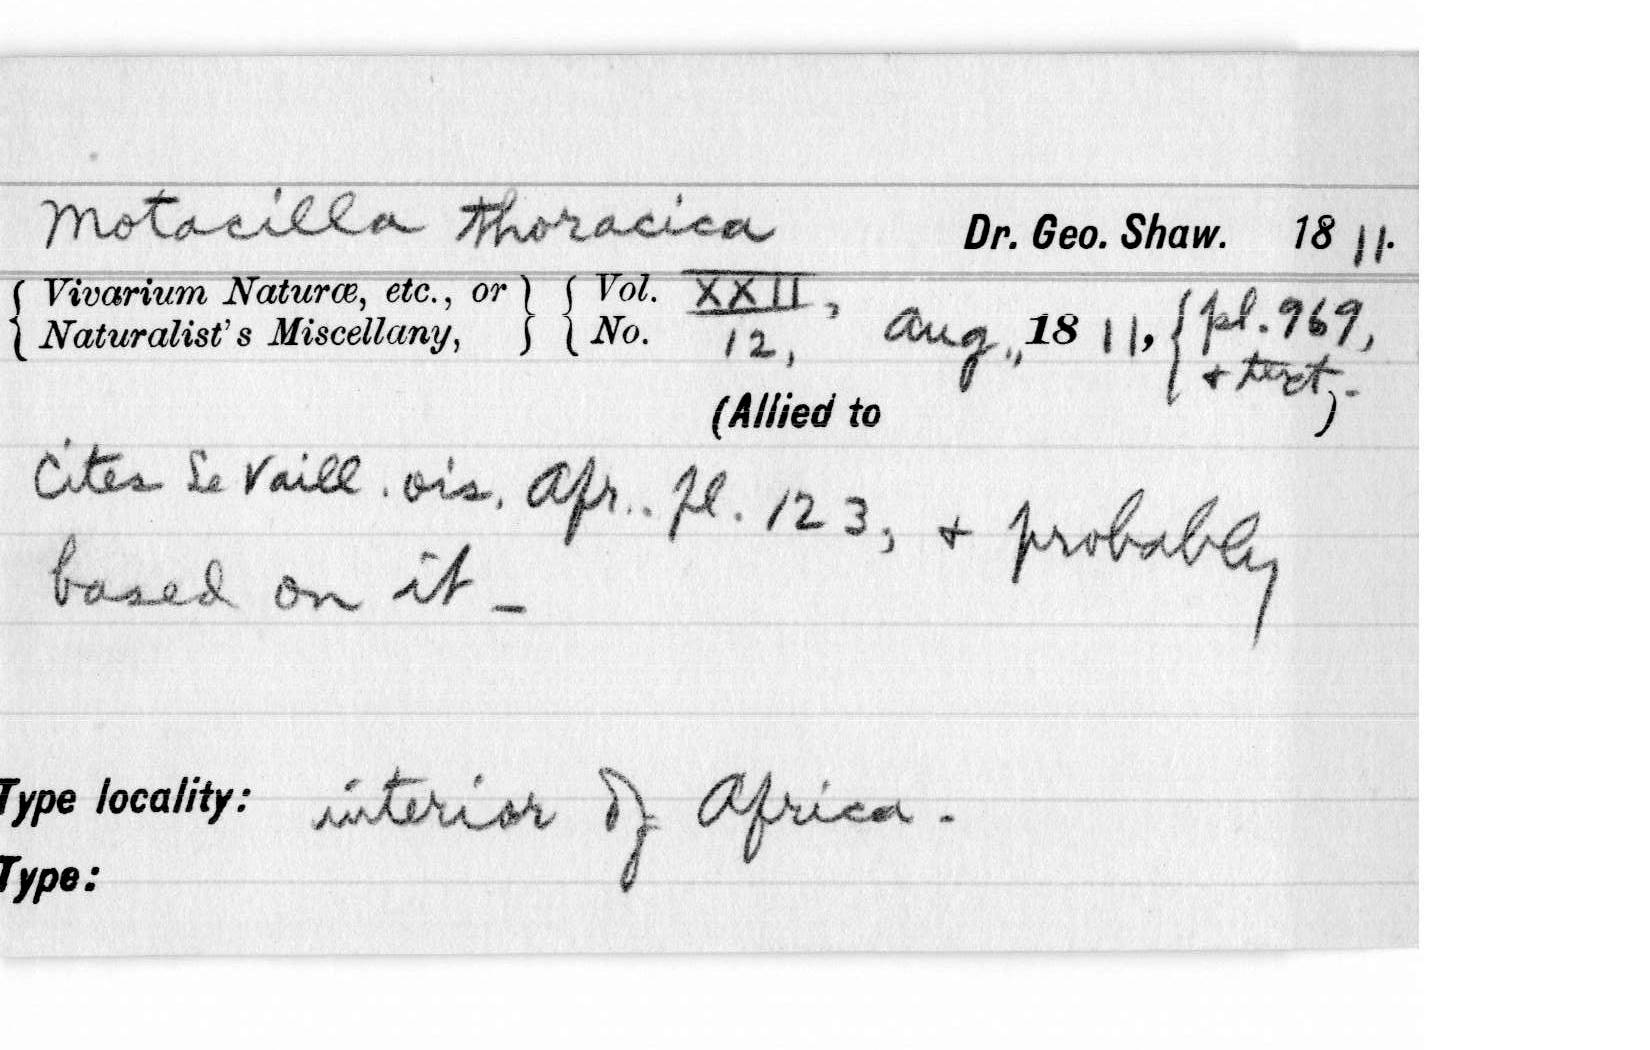 Motacilla thoracica Dr. Geo. Shaw. 1811.
{ Vivarium Naturæ, etc., or } { Vol. XXII,
{ Naturalist's Miscellany, } { No. 12, Aug., 1811, { pl. 969,
+ text.
(Allied to )
Cites Le Vaill. ois. Afr.. pl. 123, + probably
based on it –
Type locality: interior of Africa.
Type: